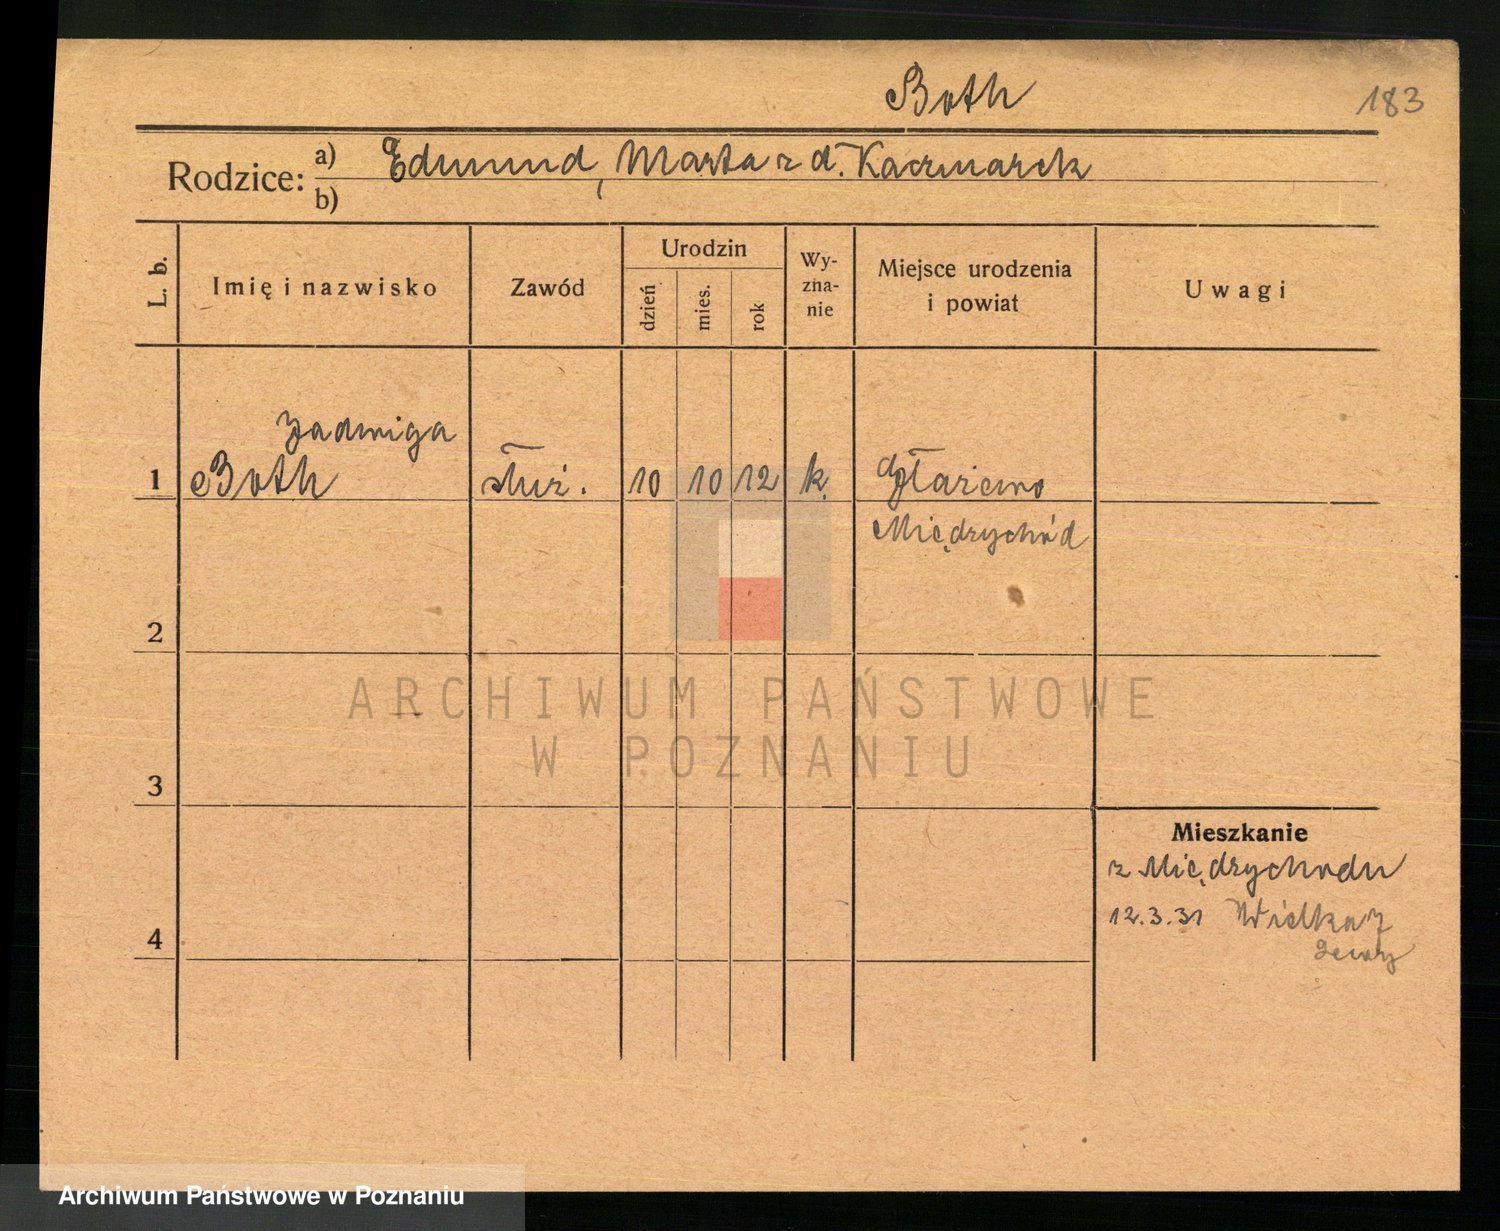 Both
183
Rodzice: a) Edmund, Marta z d. Kaczmarek
b)
L. b.
Imię i nazwisko
Zawód
Urodzin
dzień
mies.
rok
Wy-
zna-
nie
Miejsce urodzenia
i powiat
Uwagi
Jadwiga
1 Both służ. 10 10 12 k.
Międzychód
2
ARCHIWUM PAŃSTWOWE
W POZNANIU
3
Mieszkanie
z Międzychodu
12.3.31 Wielka 7
4
Archiwum Państwowe w Poznaniu